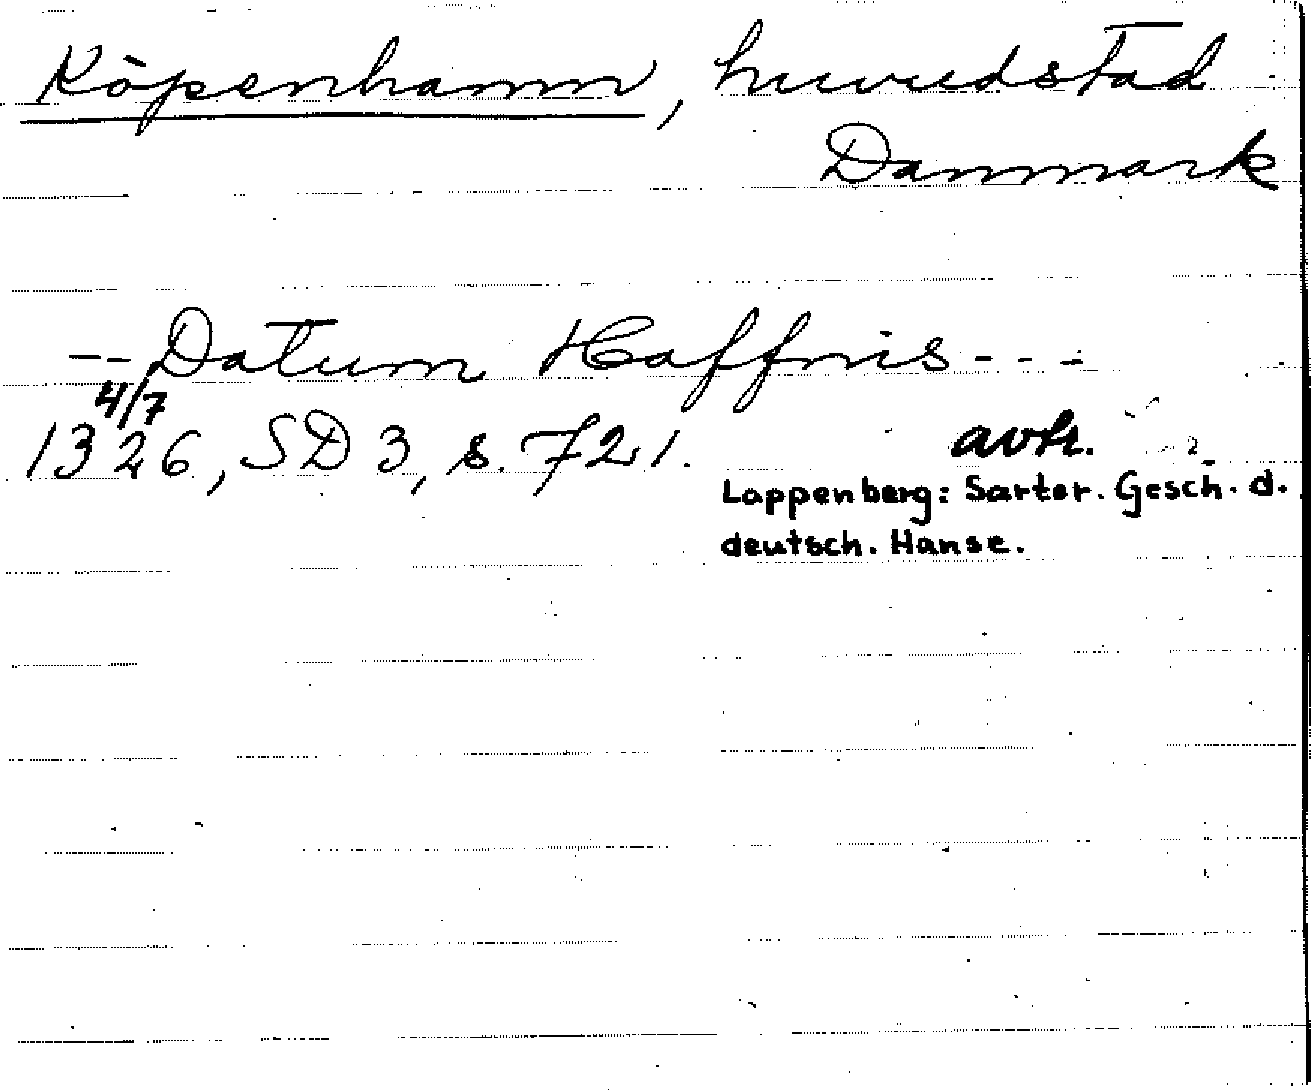 Köpenhamn, huvudstad
Danmark
-- Datum Haffnis - - -
4/7
1326, SD 3, s. 721.
avtr.
Lappenberg: Sartor. Gesch. d.
deutsch. Hanse.